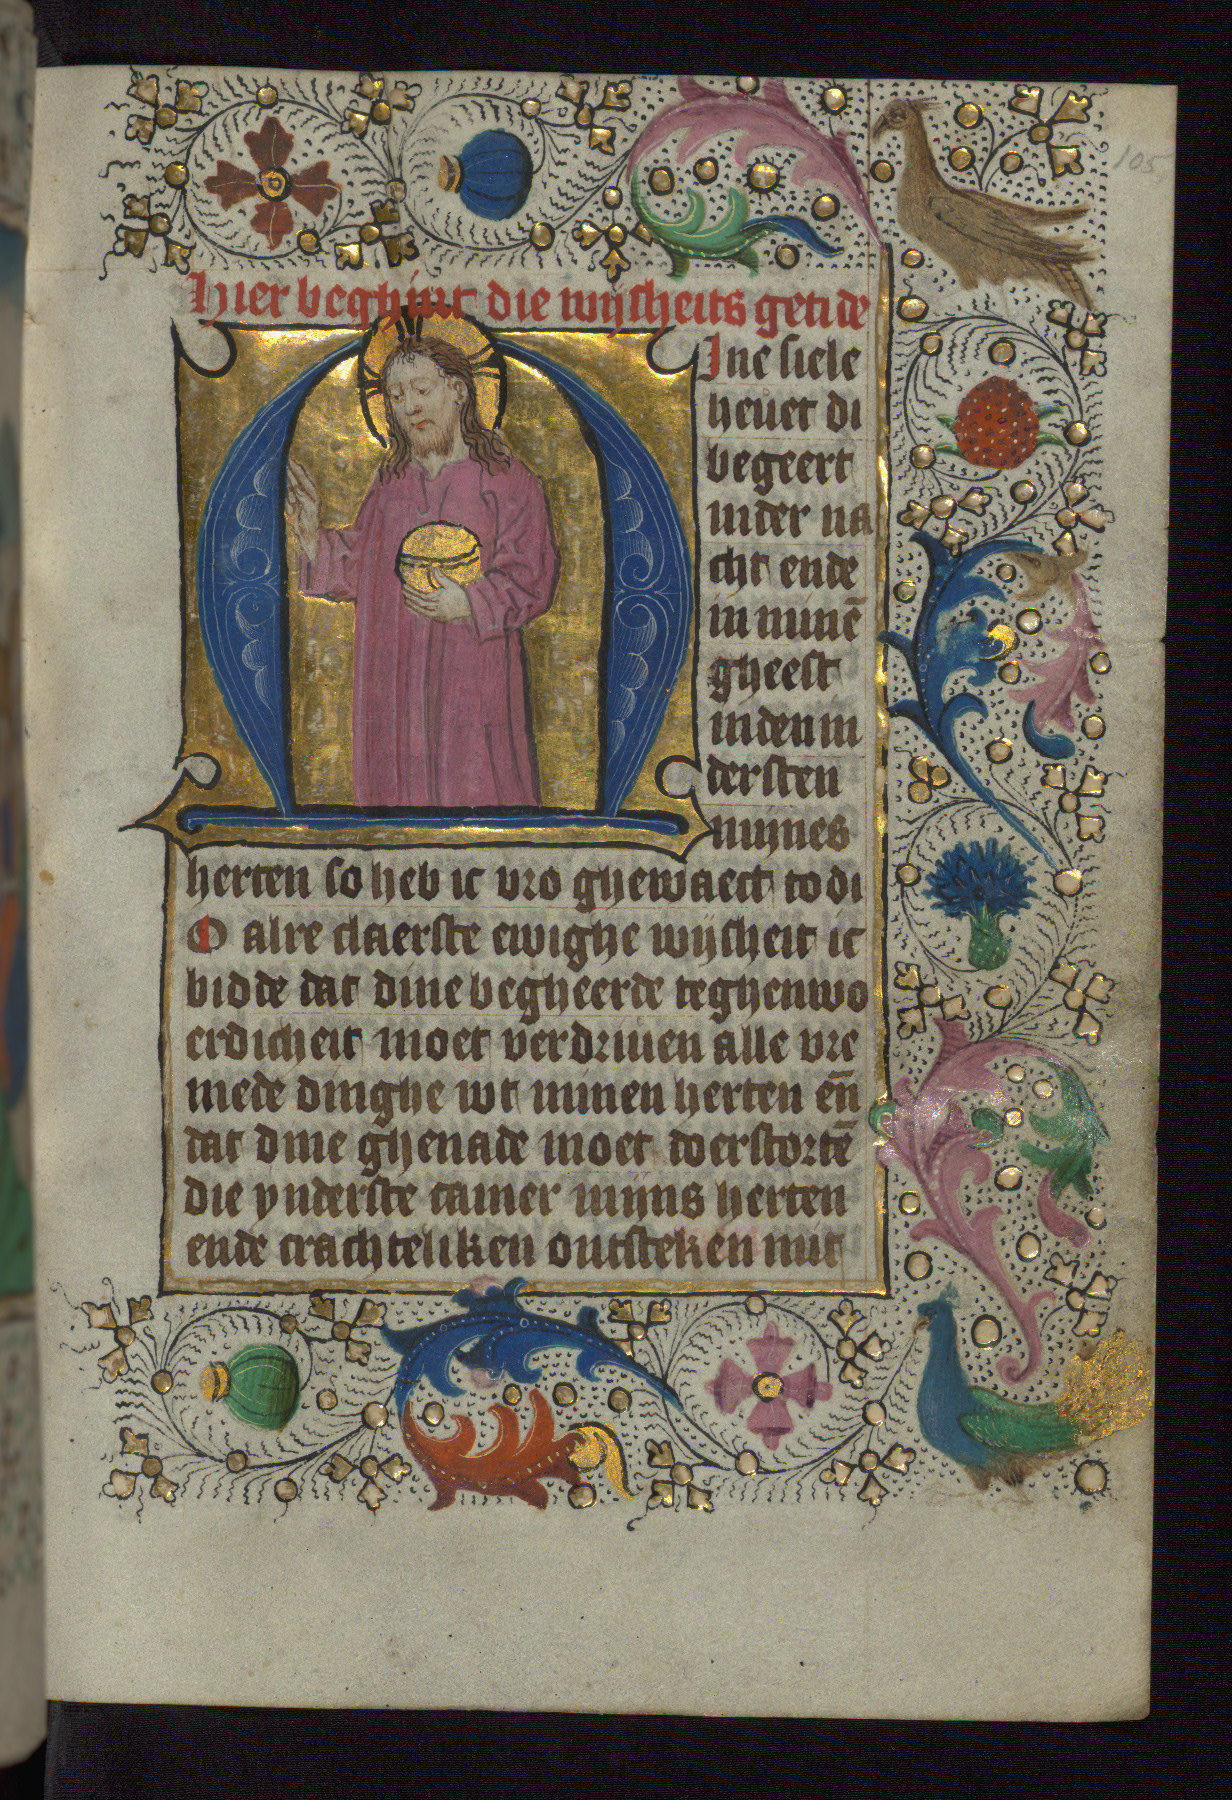 105
Hier beghint die wijsheits getide
Mine siele
heuet di
begeert
inder na
cht ende
in minē
gheest
inden in
dersten
mijnes
herten so heb ic vro ghewaect to di
O alre claerste ewighe wijsheit ic
bidde dat dine begheerde teghenwo
erdicheit moet verdriuen alle vre
mede dinghe wt minen herten eñ
dat dine ghenade moet doerstortē
die ynderste camer mijns herten
ende crachteliken ontsteken mit